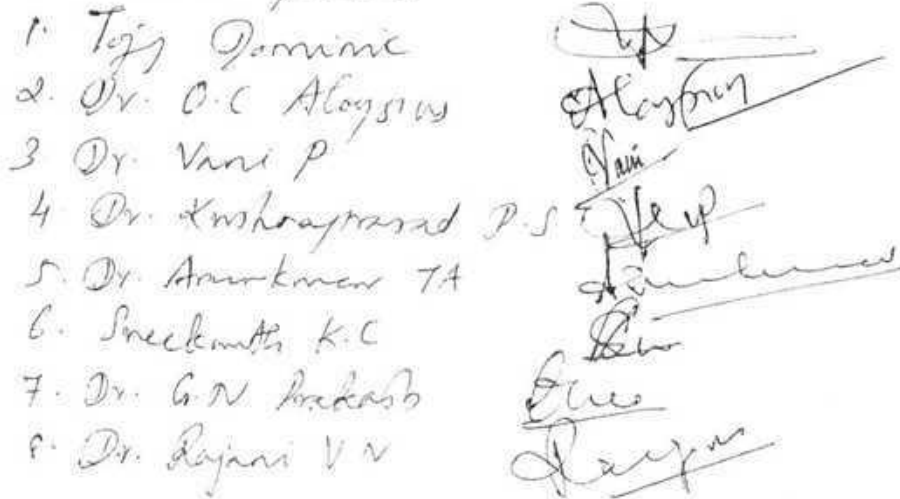 1. Tojy Dominic
2. Dr. O.C Aloysius Aloysius
3 Dr. Vani P Vani
4. Dr. Krishnaprasad P.S.
5. Dr. Arunkumar TA Arunkumar
6. Sreekanth K.C
7. Dr. G.N Prakash
8. Dr. Rajani V N